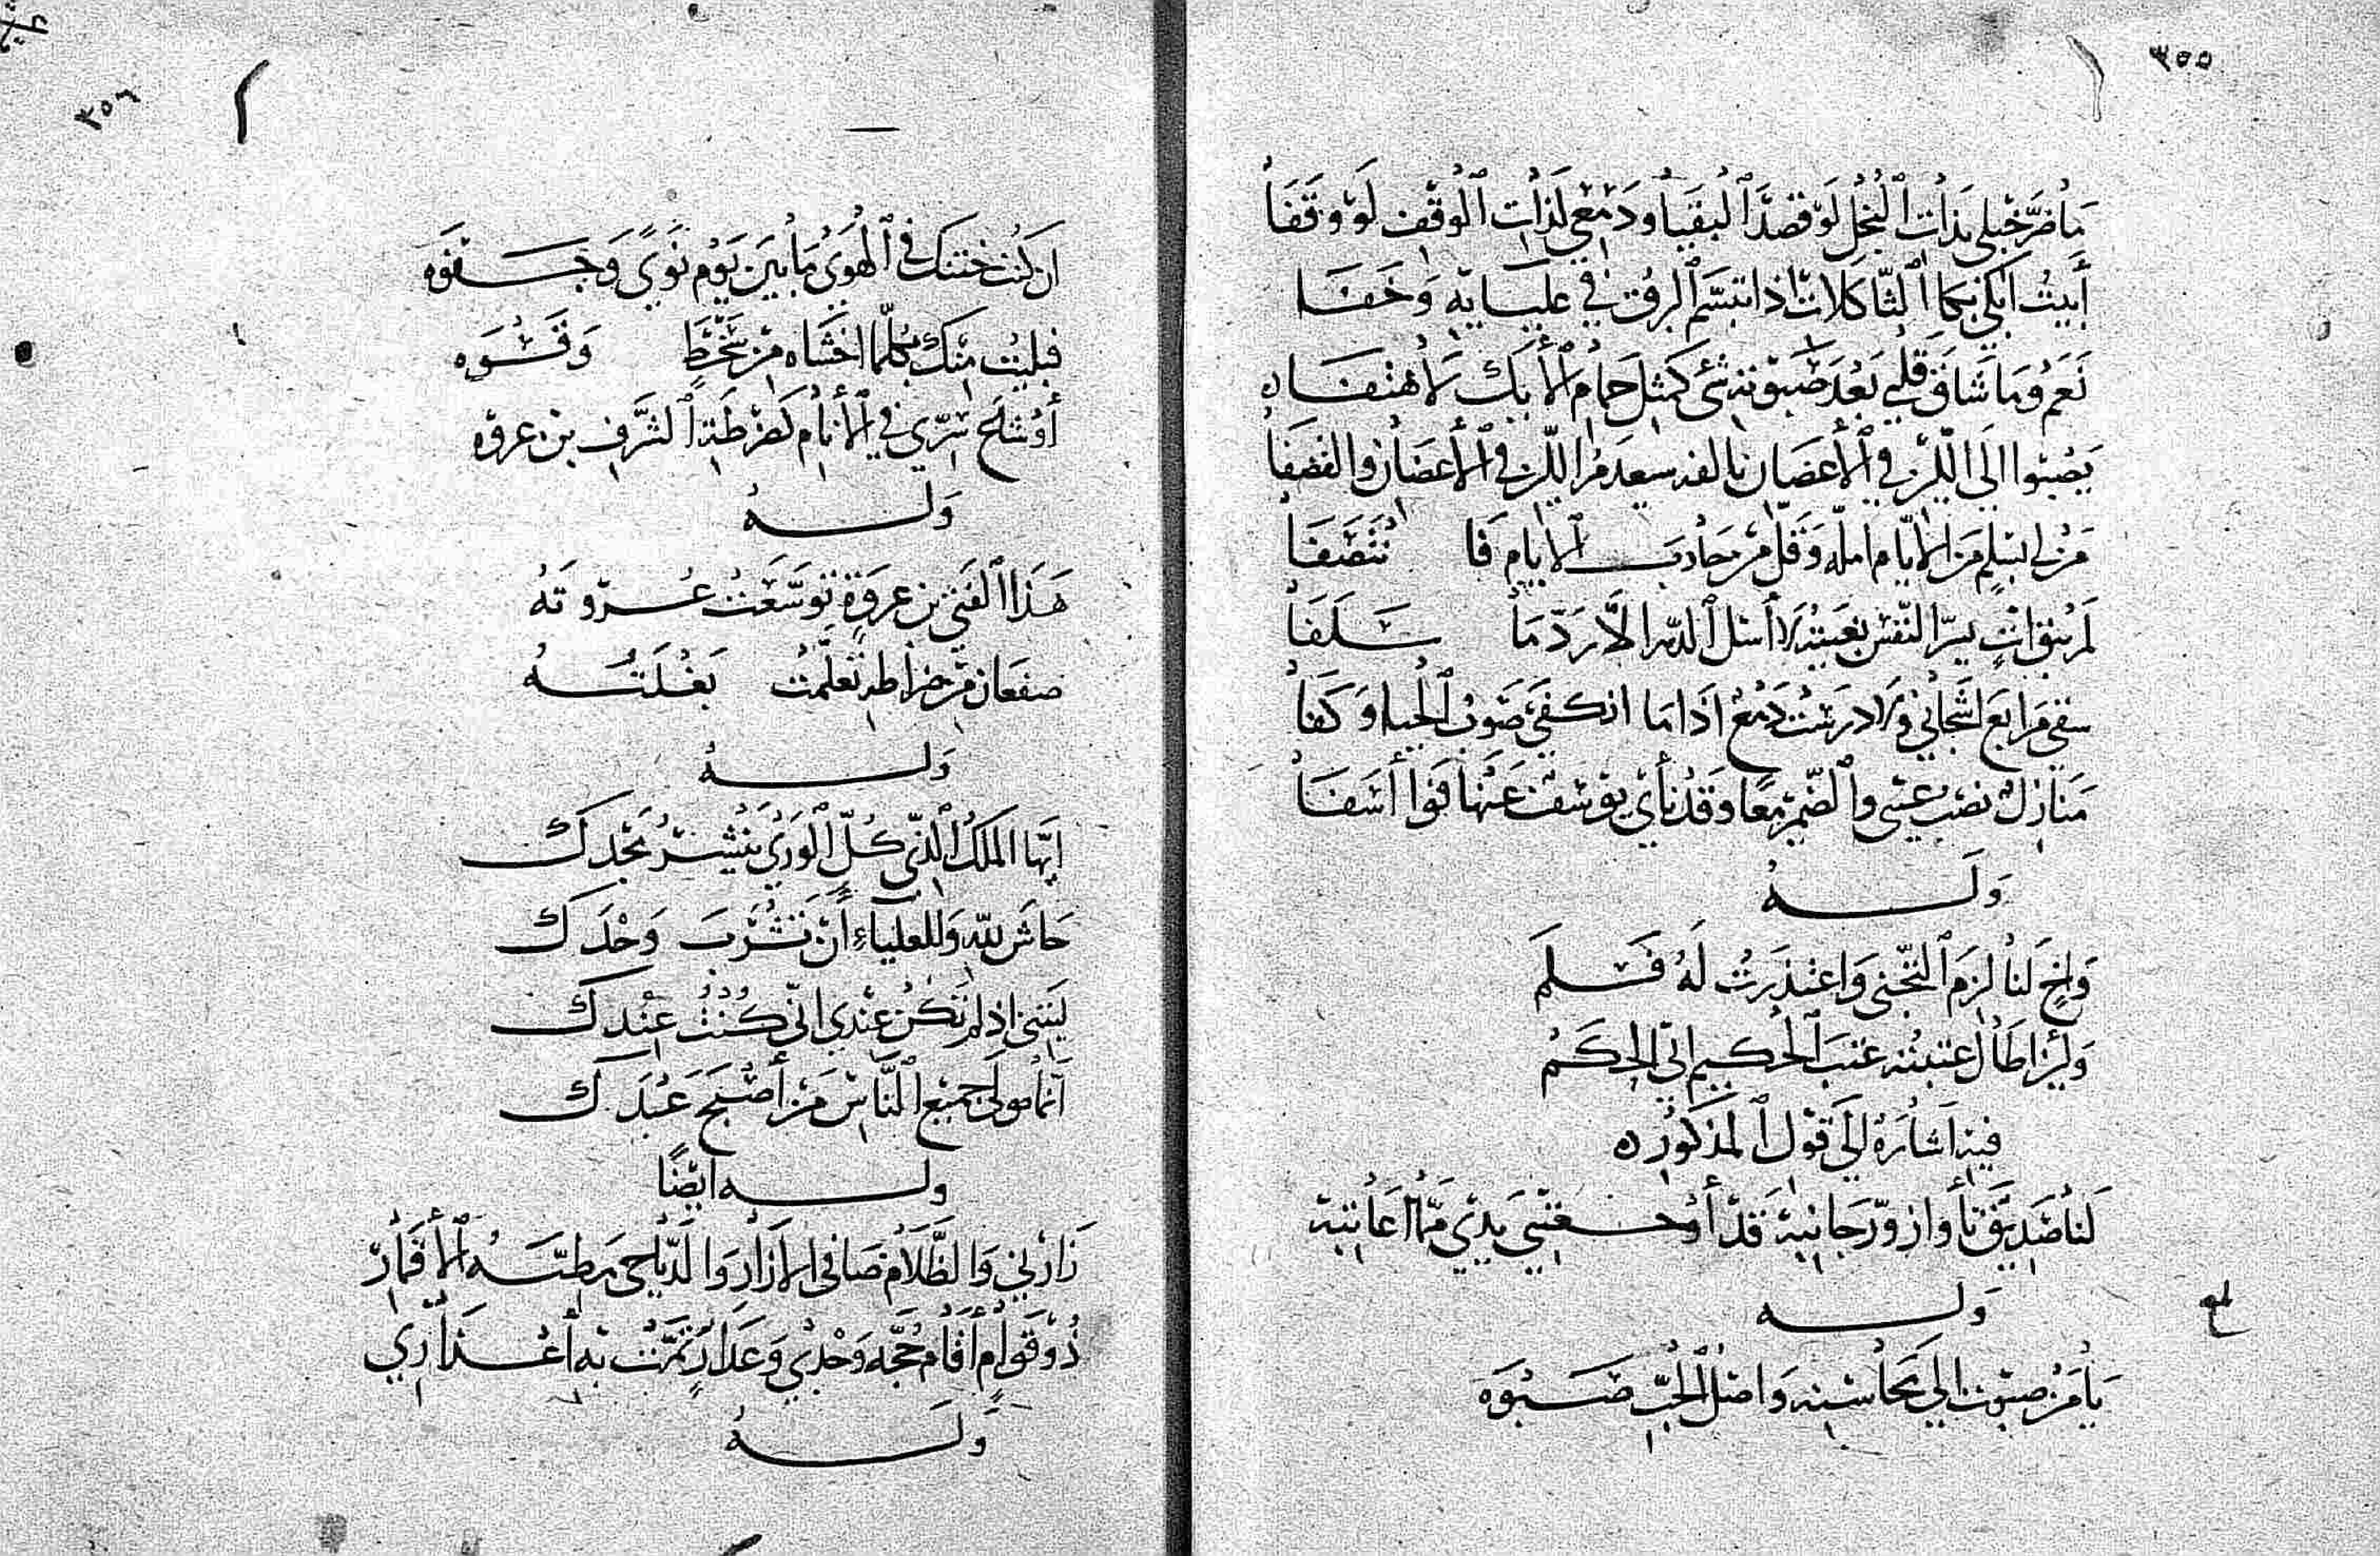 ٣٥٥
مَا ضَرَّ خيلى بذات النخل لَوْ قصدَا البقبا ودَمْعي لذات الوقف لَوْ وقَفَا
أَبيتُ ابكي بكا الثاكلات اذا ابتسَم البرق في عليايه وَخفَا
نَعَمْ وما شاقَ قلبي بَعْدَ شئ كمثل حمام الأيك لا هتفَا
يَصْبوا الى في الأغصَان في الأغصَان
مَن لى بسلم من الأيّام امله وَقل من حادث الأيام
لم يبق سرّ النفس اسئل الدهر الا رَدّ مَا سَلَفَا
سقى مَرابع اشجاني ولا درسَت دمعٌ اذا ما انكفى صَوب الحيا وَكفَا
منازلٌ نصْب عيني والضّمير معًا وقد نأى يوسف عَنها فوا أسَفَا
وَلَهُ
وَاخٍ لنا لزم التجنى وَاعتذرتُ لهُ فَسلَم
وَلَئن اطَال عتبته عتبَ الحكيم الى الحكَمْ
فيه اشارة الى قول المذكور
لنا صَديق نأى وازورّ جانبه قد أوْ يدي ممّا اعاتبه
وَله
يا مَن صبوت الى محاسنه وَاصل الحبّ صَبْوَه
٣٥٦
ان كنت خنتك في الهوى ما بين يَوم نوًى وَجَفوه
فبليت منك بكلما اخشاه من سخطٍ وَقسْوَه
أوْ شاع سرّي في الأنام كضرطَة الشرف بن عروه
وَلهُ
هَذا الفتى بن عروَةٍ توسّعَت عُروتهُ
صفعَان من ضراطه تعلّمت بغْلتُهُ
وَلهُ
ايّها الملك الذى كُلّ الورى ينشر مَجْدَك
حَاشَ لله وَللعلياءِ أن تشْرَب وَحْدَك
ليتنى اذ لم تكن عِنْدي انّى كُنت عِنْدَك
انما مولى جميع النّاس مَن أصْبَح عَبْدَك
وله ايضًا
زَارَني وَالظلام ضافى الازار وَالدّياجى مطيّة الأقمار
ذُو قوامٍ أقام حُجّة وَجْدي وَعَذار تمّت به أعْذارى
وَلَهُ